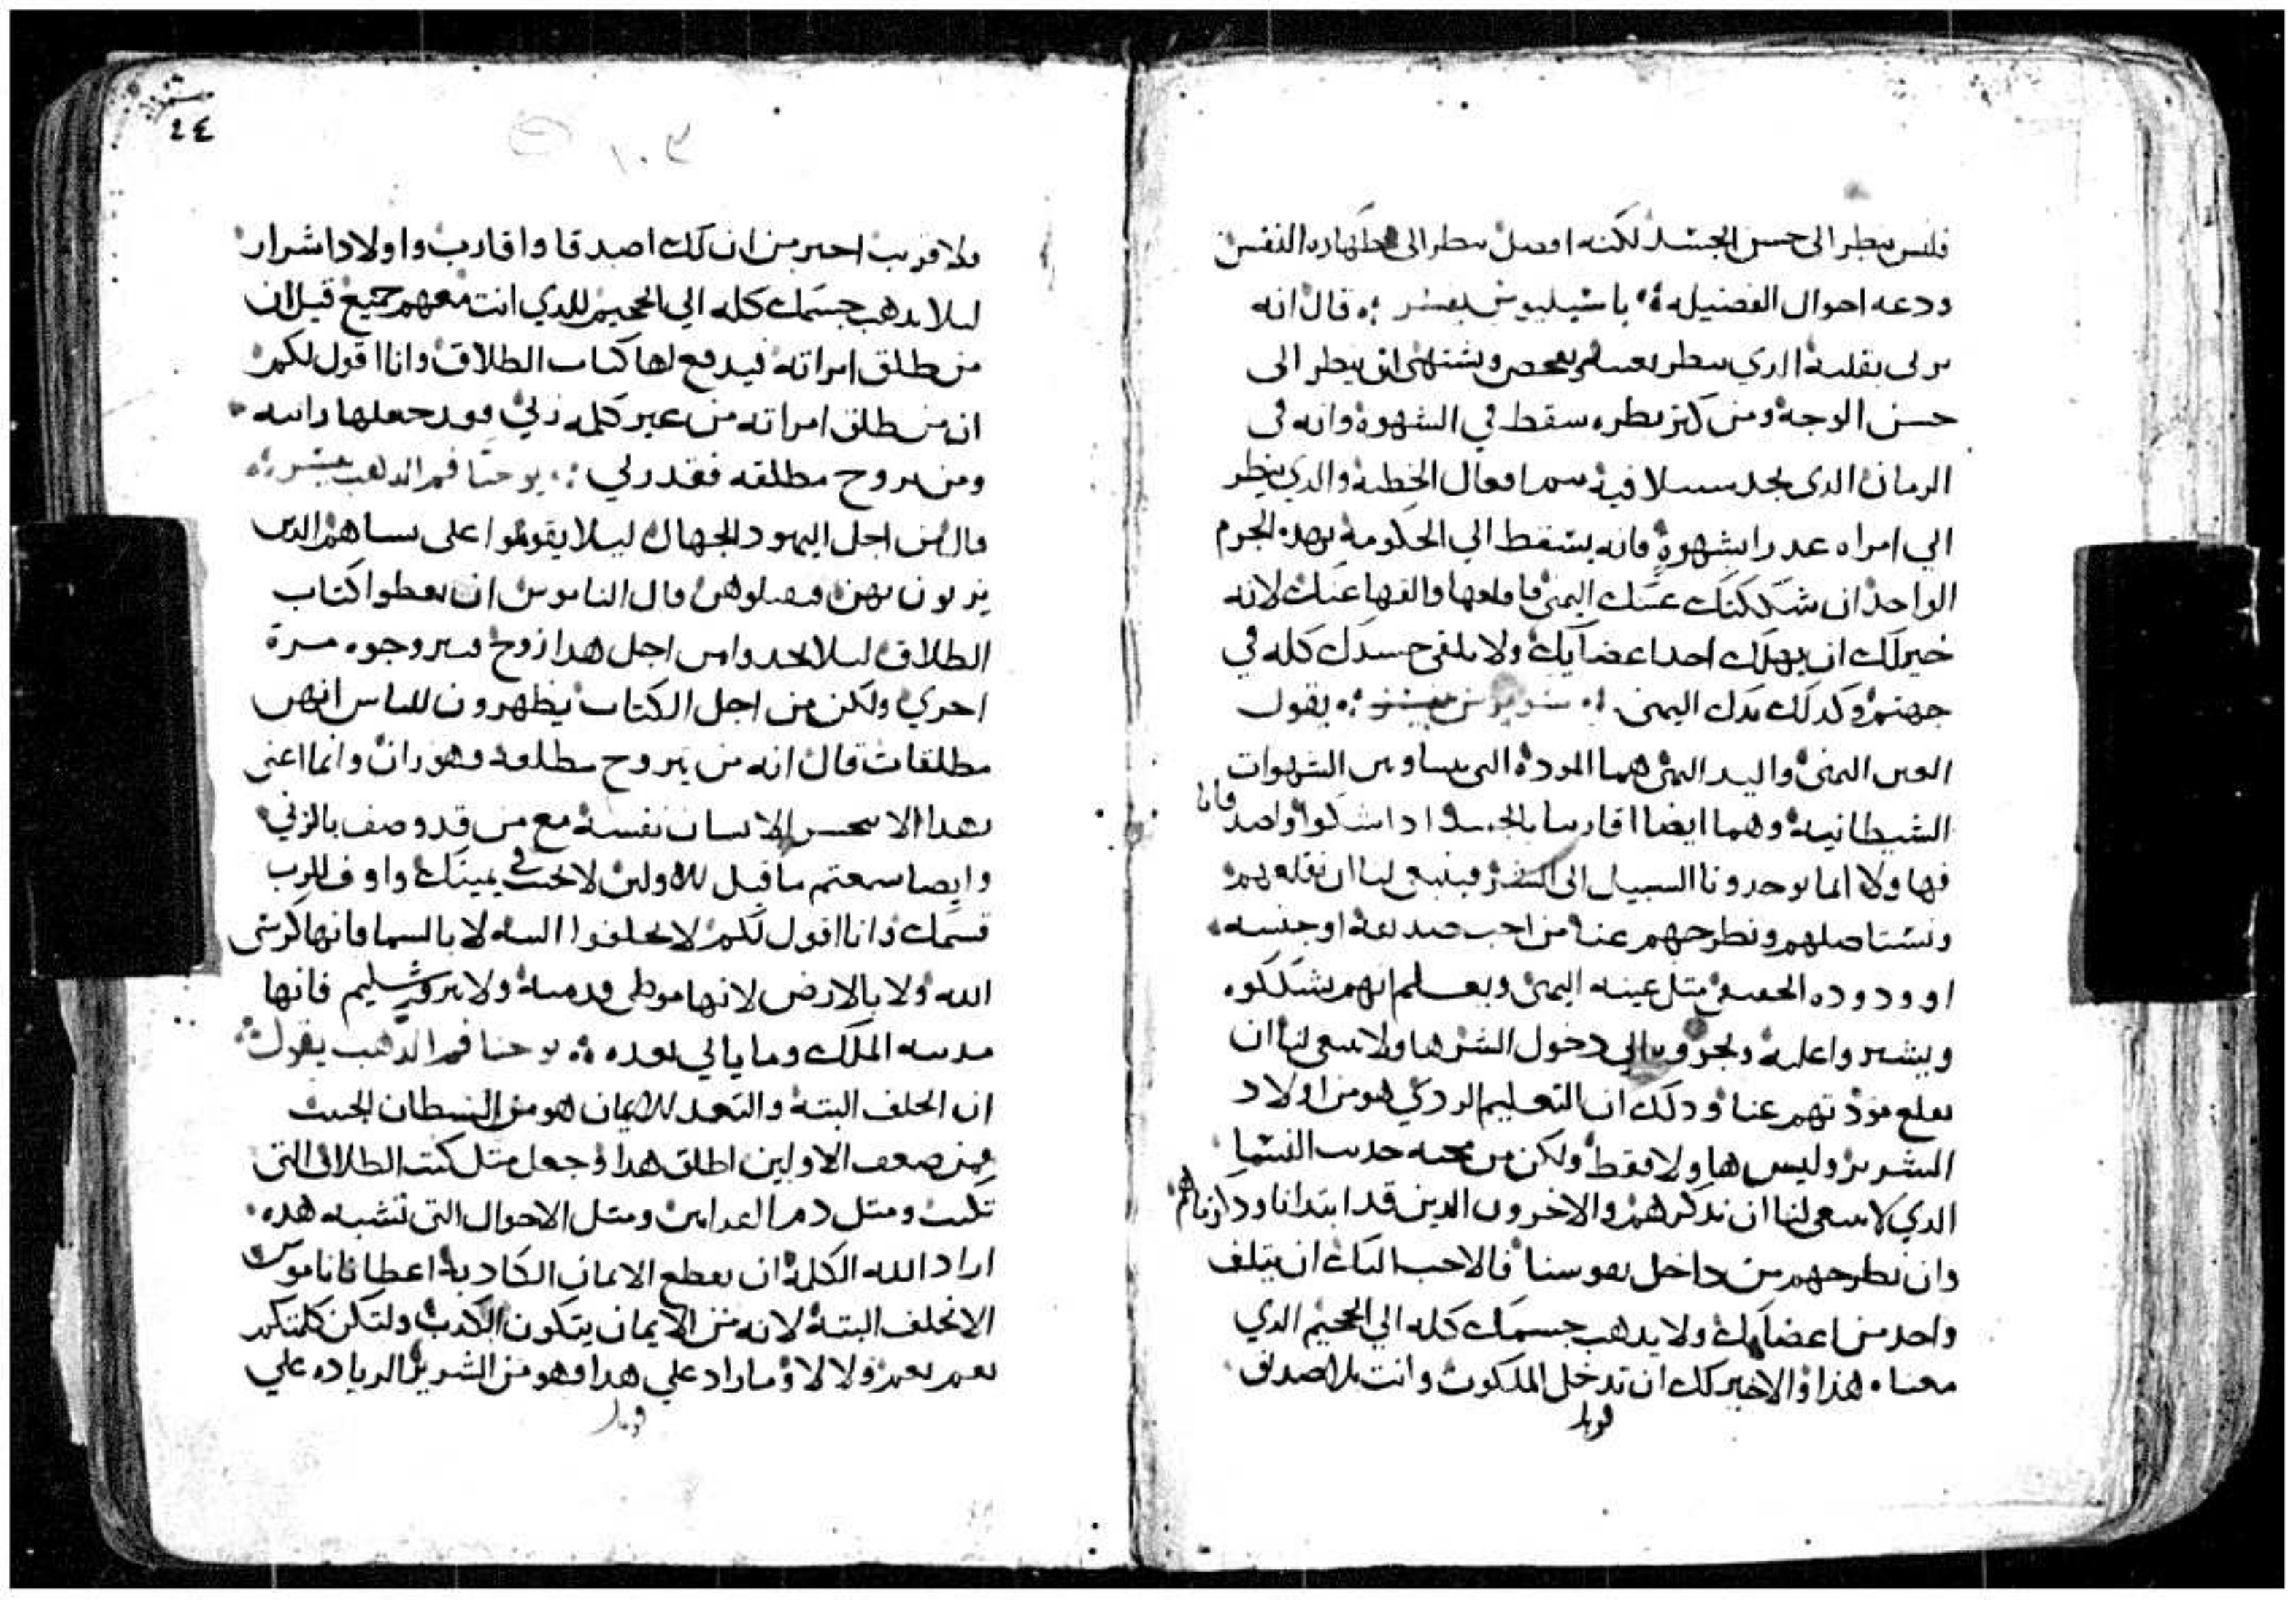 فليس ينظر الى حسن الجسد لكنه افضل ينظر الى طهاره النفس
ودعه احوال الفضيله باسيليوس يفسر قال انه
يزني بقلبه الذي ينظر يفحص ويشتهي ان ينظر الى
حسن الوجه ومن كتر نظره سقط في الشهوة وانه في
الزمان الذي يجد سبيلا فيه فعال الخطية والذي ينظر
الي امراه عدرا بشهوة فانه يسقط الي الحكومة بهده الجرم
الواحد ان شككتك عينك اليمنى فاقلعها والقها عنك لانه
خير لك ان يهلك احد اعضايك ولا يلقى جسدك كله في
جهنم وكدلك يدك اليمنى يفسر يقول
العين اليمنى واليد اليمنى هما المودة الشهوات
الشيطانية وهما ايضا اقاربنا بالجسد ادا شكوا واصدقانا
فهاولا السبيل الى الشر فينبغي لنا ان نقلعهم
ونستاصلهم ونطرحهم عنا من احب صديقه او جنسه
او وده الحقيقي متل عينه اليمنى ويعلم انهم يشككوه
ويشيروا عليه الي دخول الشر ولا ينبغي لنا ان
نقلع مودتهم عنا ودلك ان التعليم الردي هو من اولاد
الشرير وليس هاولا فقط ولكن من محبه حديث النسا
الدي لا ينبغي لنا ان ندكرهم والاخرون الدين قد ابتدانا
وان نطرحهم من داخل نفوسنا فالاحب اليك ان يتلف
واحد من اعضايك ولا يدهب جسمك كله الي الجحيم الدي
معناه هذا الاخير لك ان تدخل الملكوت وانت بلا صديق
قوبل
٢٤
١٠٣
ولا قريب اخير من ان لك اصدقا واقارب واولاد اشرار
ليلا يدهب جسمك كله الي الجحيم للدي انت معهم جميع قيل ان
من طلق امراته فيدفع لها كتاب الطلاق وانا اقول لكم
ان من طلق امراته من غير كلمه زني فقد جعلها زانيه
ومن تزوج مطلقه فقد زني يوحنا فم الدهب يفسر
قال من اجل اليهود الجهال ليلا يقوموا على نساهم الدين
يزنون بهن فيقتلوهن قال الناموس ان يعطوا كتاب
الطلاق ليلا يجدوا من اجل هدا زوج فيتزوجوه مرة
اخري ولكن من اجل الكتاب يظهرون للناس انهن
مطلقات قال انه من يتزوج مطلقة فهو زان وانما اعني
بهدا الا ينجس الانسان نفسه مع من قد وصف بالزنى
وايضا سمعتم ما قيل للاولين لا تحنث في يمينك واوف للرب
قسمك وانا اقول لكم لا تحلفوا البته لا بالسما فانها كرسي
الله ولا بالارض لانها موطى قدميه ولا بيروشليم فانها
مدينه الملك وما ياتي بعده يوحنا فم الدهب يقول
ان الحلف البتة والتعد للايمان هو من الشيطان الخبيث
فمن ضعف الاولين اطلق هدا وجعل متل كتب الطلاق التي
كتبت ومتل دم القرابين ومتل الاحوال التي تشبه هده
اراد الله الكلمة ان يقطع الايمان الكادبة اعطانا ناموس
الا نحلف البتة لانه من الايمان يتكون الكدب ولتكن كلمتكم
نعم نعم ولا لا وما زاد علي هدا فهو من الشرير الزياده علي
قوبل